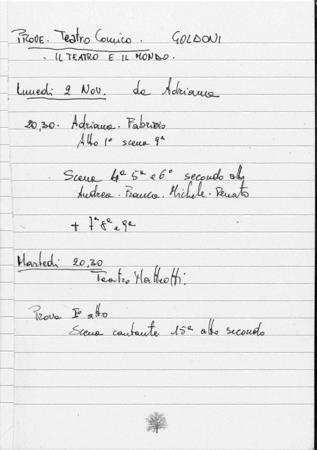 PROVE. Teatro Comico. GOLDONI
. IL TEATRO E IL MONDO.
Lunedì 2 Nov. da Adriana
20,30. Adriana. Fabrizio
Atto 1° scena 9ª
Scena 4ª 5ª e 6ª secondo atto
Andrea. Franca. Michele. Renato
+ 7ª 8ª e 9ª
Martedì 20,30
Teatro Matteotti:
Prova I° atto
Scena cantante 15ª atto secondo